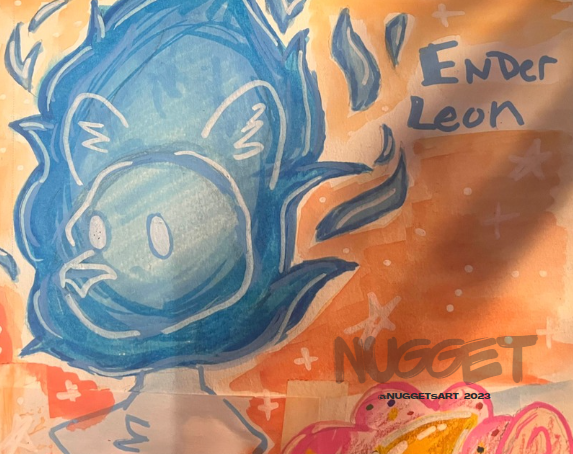 ENDer
Leon
NUGGET
@NUGGETsART 2023